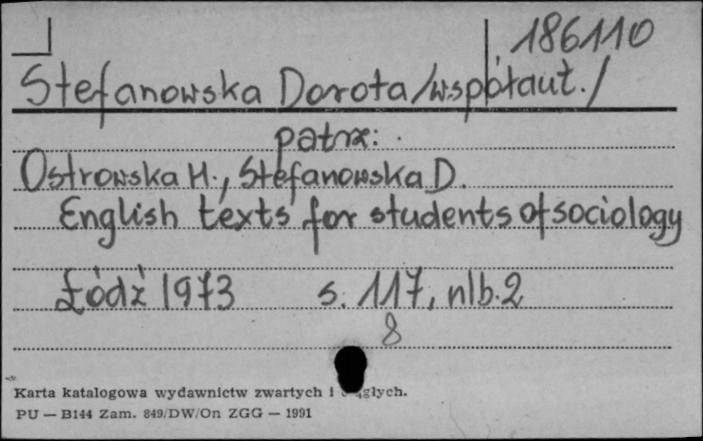 186110
Stefanowska Dorota /współaut./
patrz:
Ostrowska H., Stefanowska D.
English texts for students of sociology
Łódź 1973 s. 117, nlb. 2
8
Karta katalogowa wydawnictw zwartych i
PU — B144 Zam. 849/DW/On ZGG — 1991